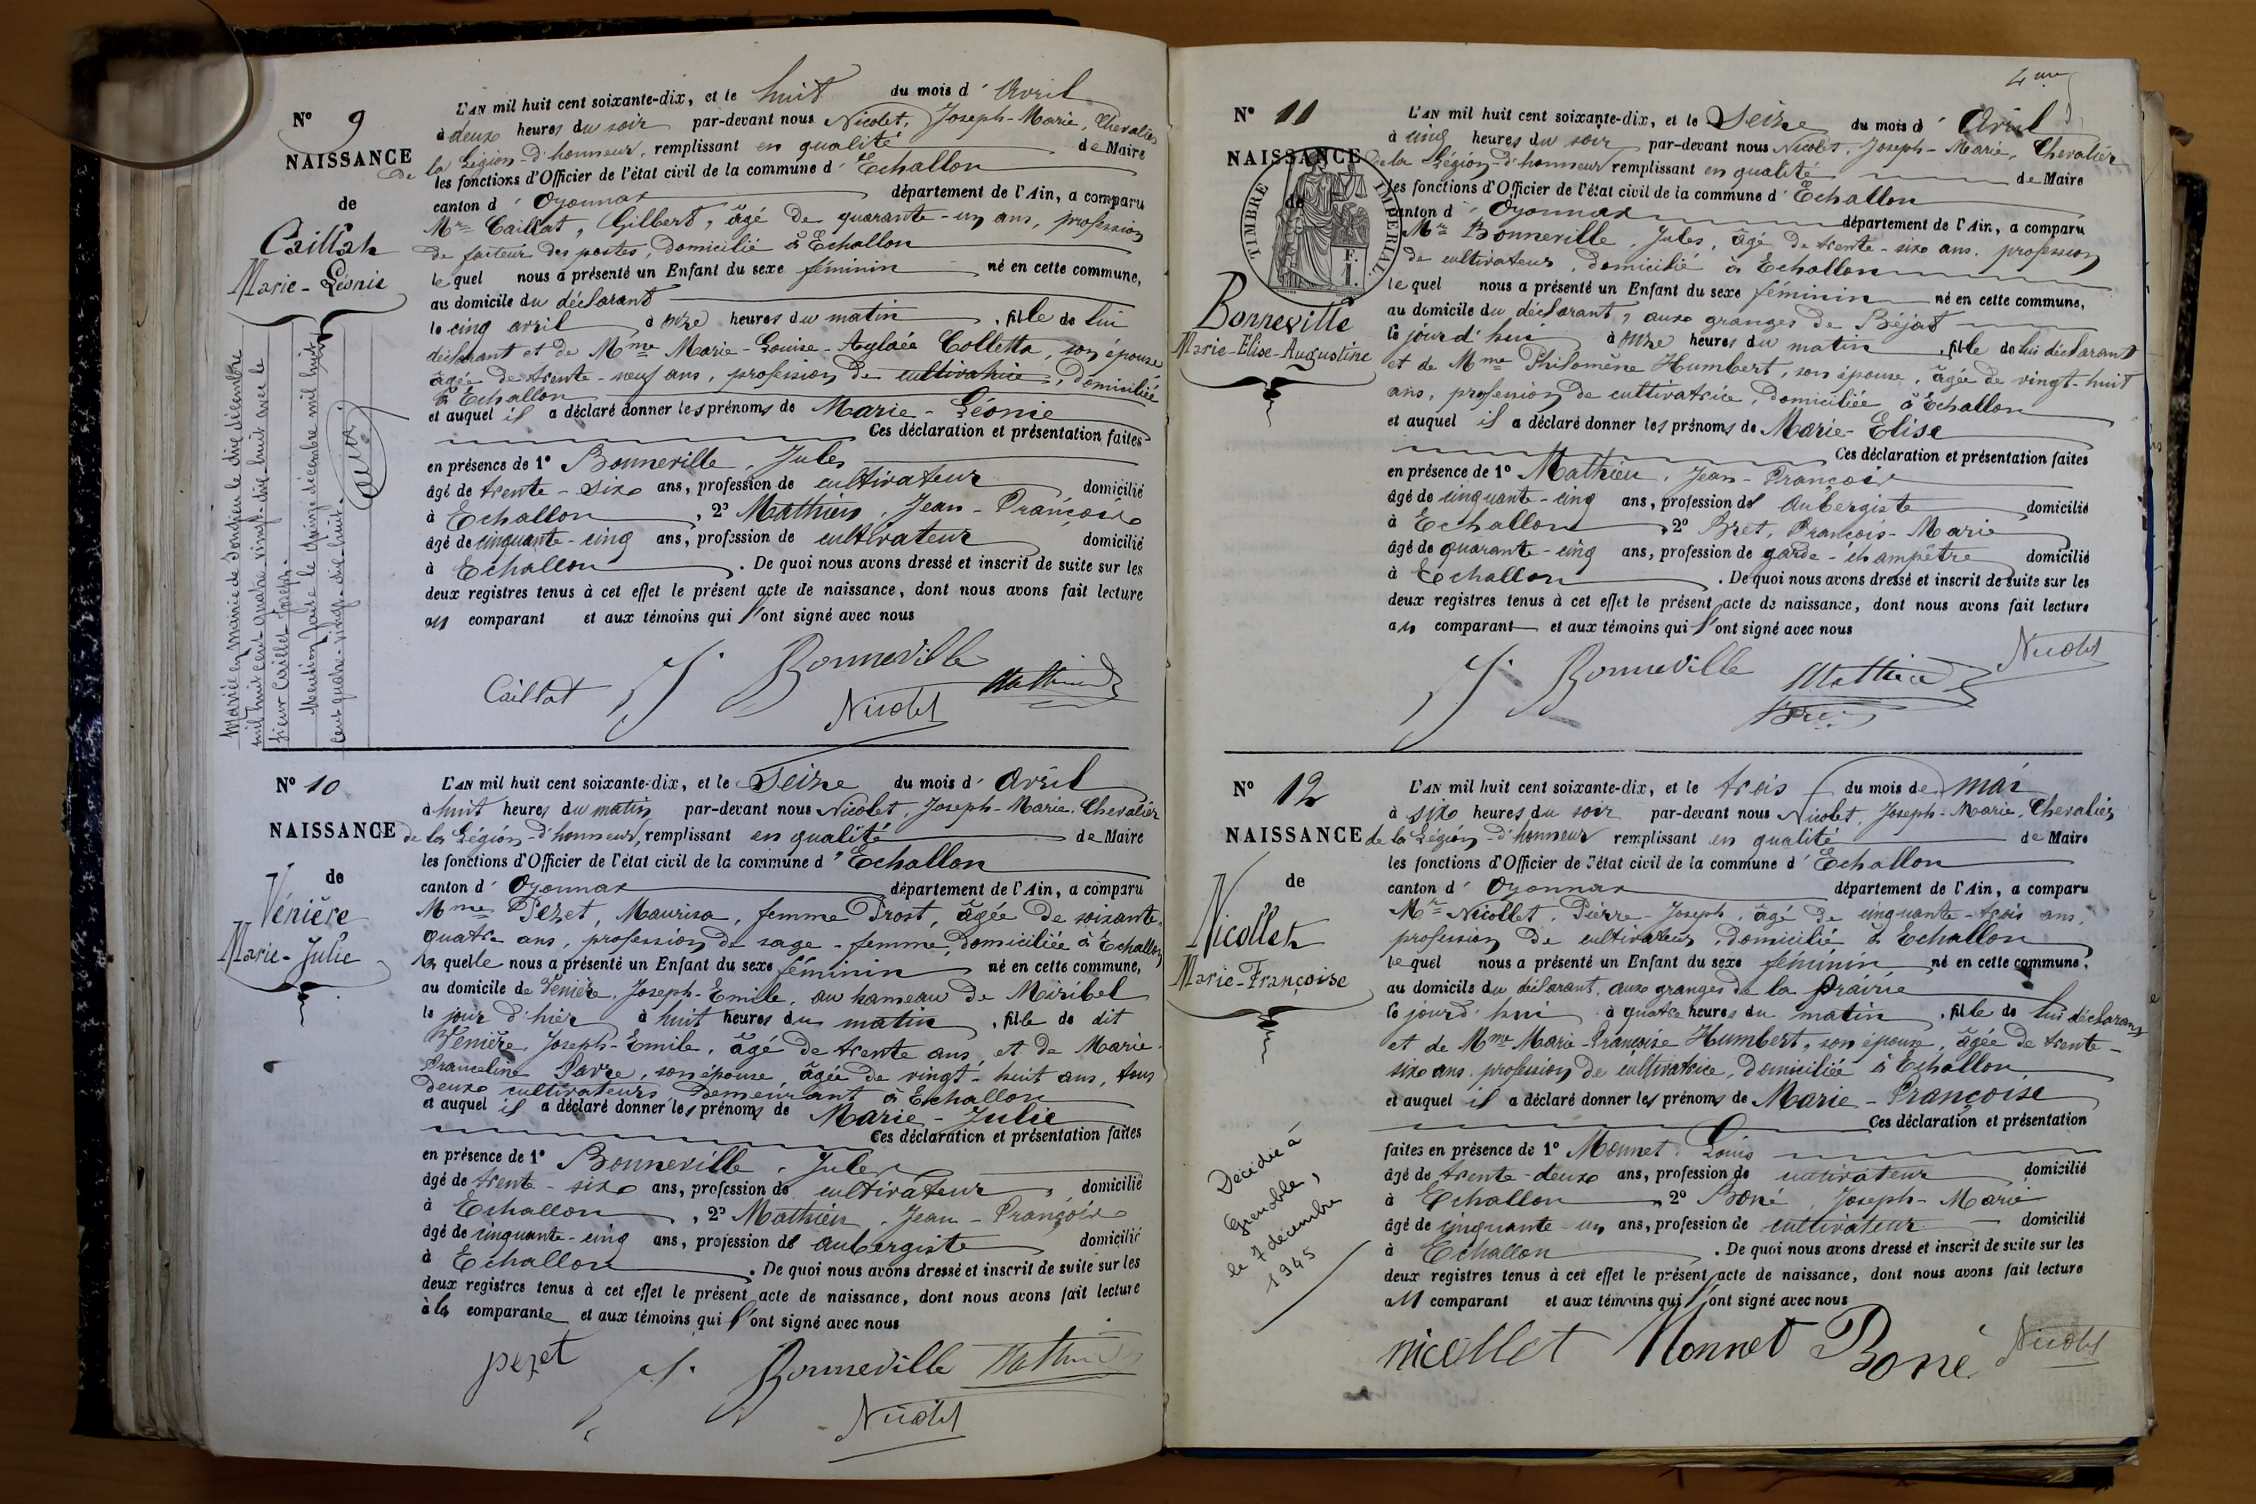 N° 9
NAISSANCE
de
Caillat
Marie-Léonie
Mariée en Mairie de Dondieu le dix décembre
mil huit cent quatre-vingt-dix-huit avec le
sieur Caillet Joseph.
Mention faite le quinze décembre mil huit
cent quatre-vingt-dix-huit.
L'AN mil huit cent soixante-dix, et le huit du mois d'Avril
à deux heures du soir par-devant nous Nicolet, Joseph-Marie, Chevalier
de la Légion-d'honneur, remplissant en qualité de Maire
les fonctions d'Officier de l'état civil de la commune d'Echallon
canton d'Oyonnax département de l'Ain, a comparu
Mr Caillat, Gilbert, âgé de quarante-un ans, profession
de facteur des postes, domicilié à Echallon
lequel nous a présenté un Enfant du sexe féminin né en cette commune,
au domicile du déclarant
le cinq avril à onze heures du matin, fille de lui
déclarant et de Mme Marie-Louise-Aglaée Colletta, son épouse
âgée de trente-neuf ans, profession de cultivatrice, domiciliée
à Echallon
et auquel il a déclaré donner les prénoms de Marie-Léonie
Ces déclaration et présentation faites
en présence de 1° Bonneville, Jules
âgé de trente-six ans, profession de cultivateur domicilié
à Echallon, 2° Mathieu, Jean-François
âgé de cinquante-cinq ans, profession de cultivateur domicilié
à Echallon. De quoi nous avons dressé et inscrit de suite sur les
deux registres tenus à cet effet le présent acte de naissance, dont nous avons fait lecture
au comparant et aux témoins qui l'ont signé avec nous
Caillat J. Bonneville Mathieu
Nicolet
N° 10
NAISSANCE
de
Vénière
Marie-Julie
L'AN mil huit cent soixante-dix, et le Seize du mois d'Avril
à huit heures du matin par-devant nous Nicolet, Joseph-Marie, Chevalier
de la Légion-d'honneur, remplissant en qualité de Maire
les fonctions d'Officier de l'état civil de la commune d'Echallon
canton d'Oyonnax département de l'Ain, a comparu
Mme Pezet, Maurisa, femme Prost, âgée de soixante-
quatre ans, profession de sage-femme, domiciliée à Echallon
laquelle nous a présenté un Enfant du sexe féminin né en cette commune,
au domicile de Vénière, Joseph-Emile, au hameau de Miribel
le jour d'hier à huit heures du matin, fille de dit
Vénière, Joseph-Emile, âgé de trente ans, et de Marie-
Franceline Favre, son épouse, âgée de vingt-huit ans, tous
deux cultivateurs demeurant à Echallon
et auquel il a déclaré donner les prénoms de Marie-Julie
Ces déclaration et présentation faites
en présence de 1° Bonneville, Jules
âgé de trente-six ans, profession de cultivateur, domicilié
à Echallon, 2° Mathieu, Jean-François
âgé de cinquante-cinq ans, profession de aubergiste domicilié
à Echallon. De quoi nous avons dressé et inscrit de suite sur les
deux registres tenus à cet effet le présent acte de naissance, dont nous avons fait lecture
à la comparante et aux témoins qui l'ont signé avec nous
pezet J. Bonneville Mathieu
Nicolet
4me
N° 11
NAISSANCE
de
TIMBRE IMPÉRIAL.
F.
1.
Bonneville
Marie-Elise-Augustine
L'AN mil huit cent soixante-dix, et le Seize du mois d'Avril
à cinq heures du soir par-devant nous Nicolet, Joseph-Marie, Chevalier
de la Légion-d'honneur remplissant en qualité de Maire
les fonctions d'Officier de l'état civil de la commune d'Echallon
canton d'Oyonnax département de l'Ain, a comparu
Mr Bonneville, Jules, âgé de trente-six ans, profession
de cultivateur, domicilié à Echallon
lequel nous a présenté un Enfant du sexe féminin né en cette commune,
au domicile du déclarant, aux granges de Béjat
ce jourd'hui à onze heures du matin, fille de lui déclarant
et de Mme Philomène Humbert, son épouse, âgée de vingt-huit
ans, profession de cultivatrice, domiciliée à Echallon
et auquel il a déclaré donner les prénoms de Marie-Elise
Ces déclaration et présentation faites
en présence de 1° Mathieu, Jean-François
âgé de cinquante-cinq ans, profession de aubergiste domicilié
à Echallon 2° Bret, François-Marie
âgé de quarante-cinq ans, profession de garde-champêtre domicilié
à Echallon. De quoi nous avons dressé et inscrit de suite sur les
deux registres tenus à cet effet le présent acte de naissance, dont nous avons fait lecture
au comparant et aux témoins qui l'ont signé avec nous
J. Bonneville Mathieu Nicolet
Bret
N° 12
NAISSANCE
de
Nicollet
Marie-Françoise
Décédée à
Grenoble,
le 7 décembre
1945
L'AN mil huit cent soixante-dix, et le trois du mois de mai
à six heures du soir par-devant nous Nicolet, Joseph-Marie, Chevalier
de la Légion-d'honneur remplissant en qualité de Maire
les fonctions d'Officier de l'état civil de la commune d'Echallon
canton d'Oyonnax département de l'Ain, a comparu
Mr Nicollet, Pierre-Joseph, âgé de cinquante-trois ans,
profession de cultivateur, domicilié à Echallon
lequel nous a présenté un Enfant du sexe féminin né en cette commune,
au domicile du déclarant, aux granges de la prairie
ce jourd'hui à quatre heures du matin, fille de lui déclarant
et de Mme Marie-Françoise Humbert, son épouse, âgée de trente-
six ans, profession de cultivatrice, domiciliée à Echallon
et auquel il a déclaré donner les prénoms de Marie-Françoise
Ces déclaration et présentation
faites en présence de 1° Monnet, Louis
âgé de trente-deux ans, profession de cultivateur domicilié
à Echallon 2° Boné, Joseph-Marie
âgé de cinquante-un ans, profession de cultivateur domicilié
à Echallon. De quoi nous avons dressé et inscrit de suite sur les
deux registres tenus à cet effet le présent acte de naissance, dont nous avons fait lecture
au comparant et aux témoins qui l'ont signé avec nous
nicollet Monnet Boné Nicolet